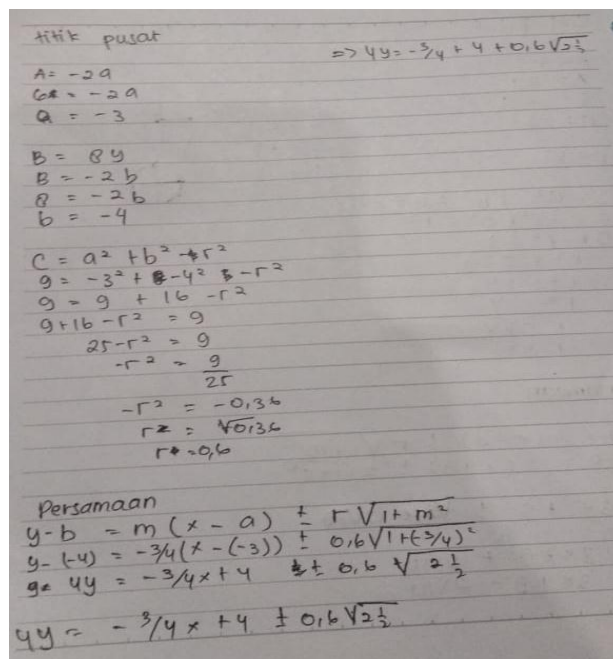 titik pusat
=> 4y = -3/4 + 4 + 0,6√2½
A = -2a
6 = -2a
a = -3
B = 8y
B = -2b
8 = -2b
b = -4
C = a² + b² - r²
9 = -3² + -4² - r²
9 = 9 + 16 - r²
9 + 16 - r² = 9
25 - r² = 9
-r² = 9/25
-r² = -0,36
r = √0,36
r = 0,6
Persamaan
y - b = m (x - a) ± r √1 + m²
y - (-4) = -3/4 (x - (-3)) ± 0,6 √1 + (-3/4)²
4y = -3/4x + 4 ± 0,6 √2½
4y = -3/4x + 4 ± 0,6 √2½